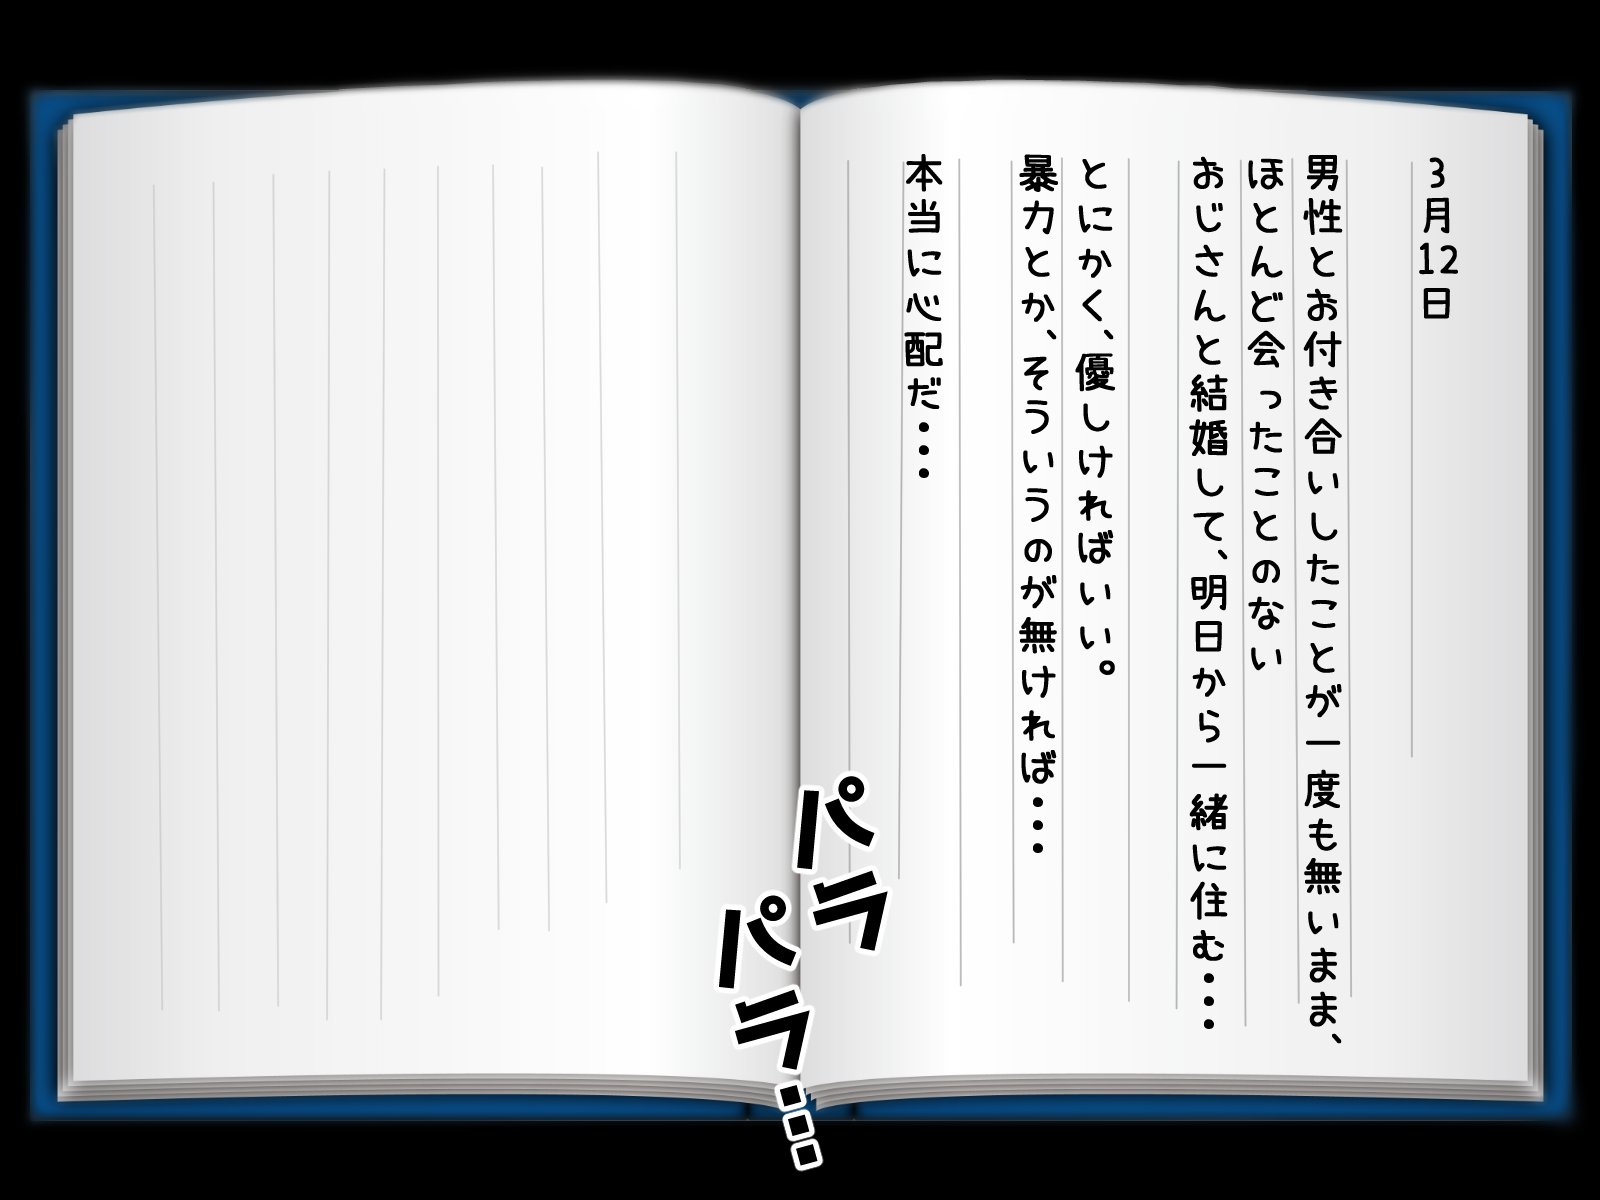 3月12日
男性とお付き合いしたことが一度も無いまま、
ほとんど会ったことのない
おじさんと結婚して、明日から一緒に住む・・・
とにかく、優しければいい。
暴力とか、そういうのが無ければ・・・
本当に心配だ・・・
パラ
パラ…